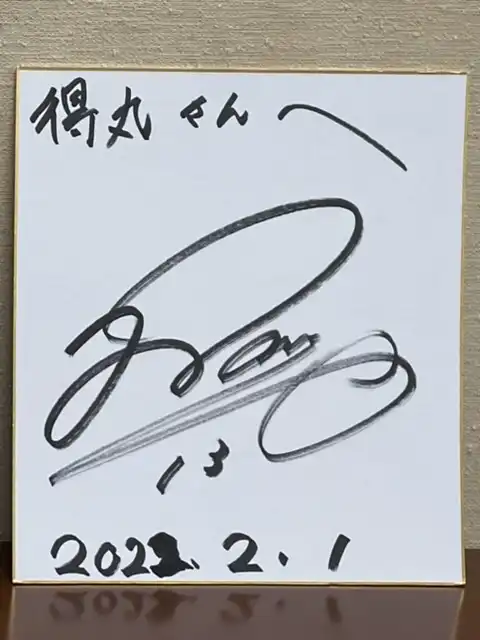 得丸さんへ
13
2022.2.1